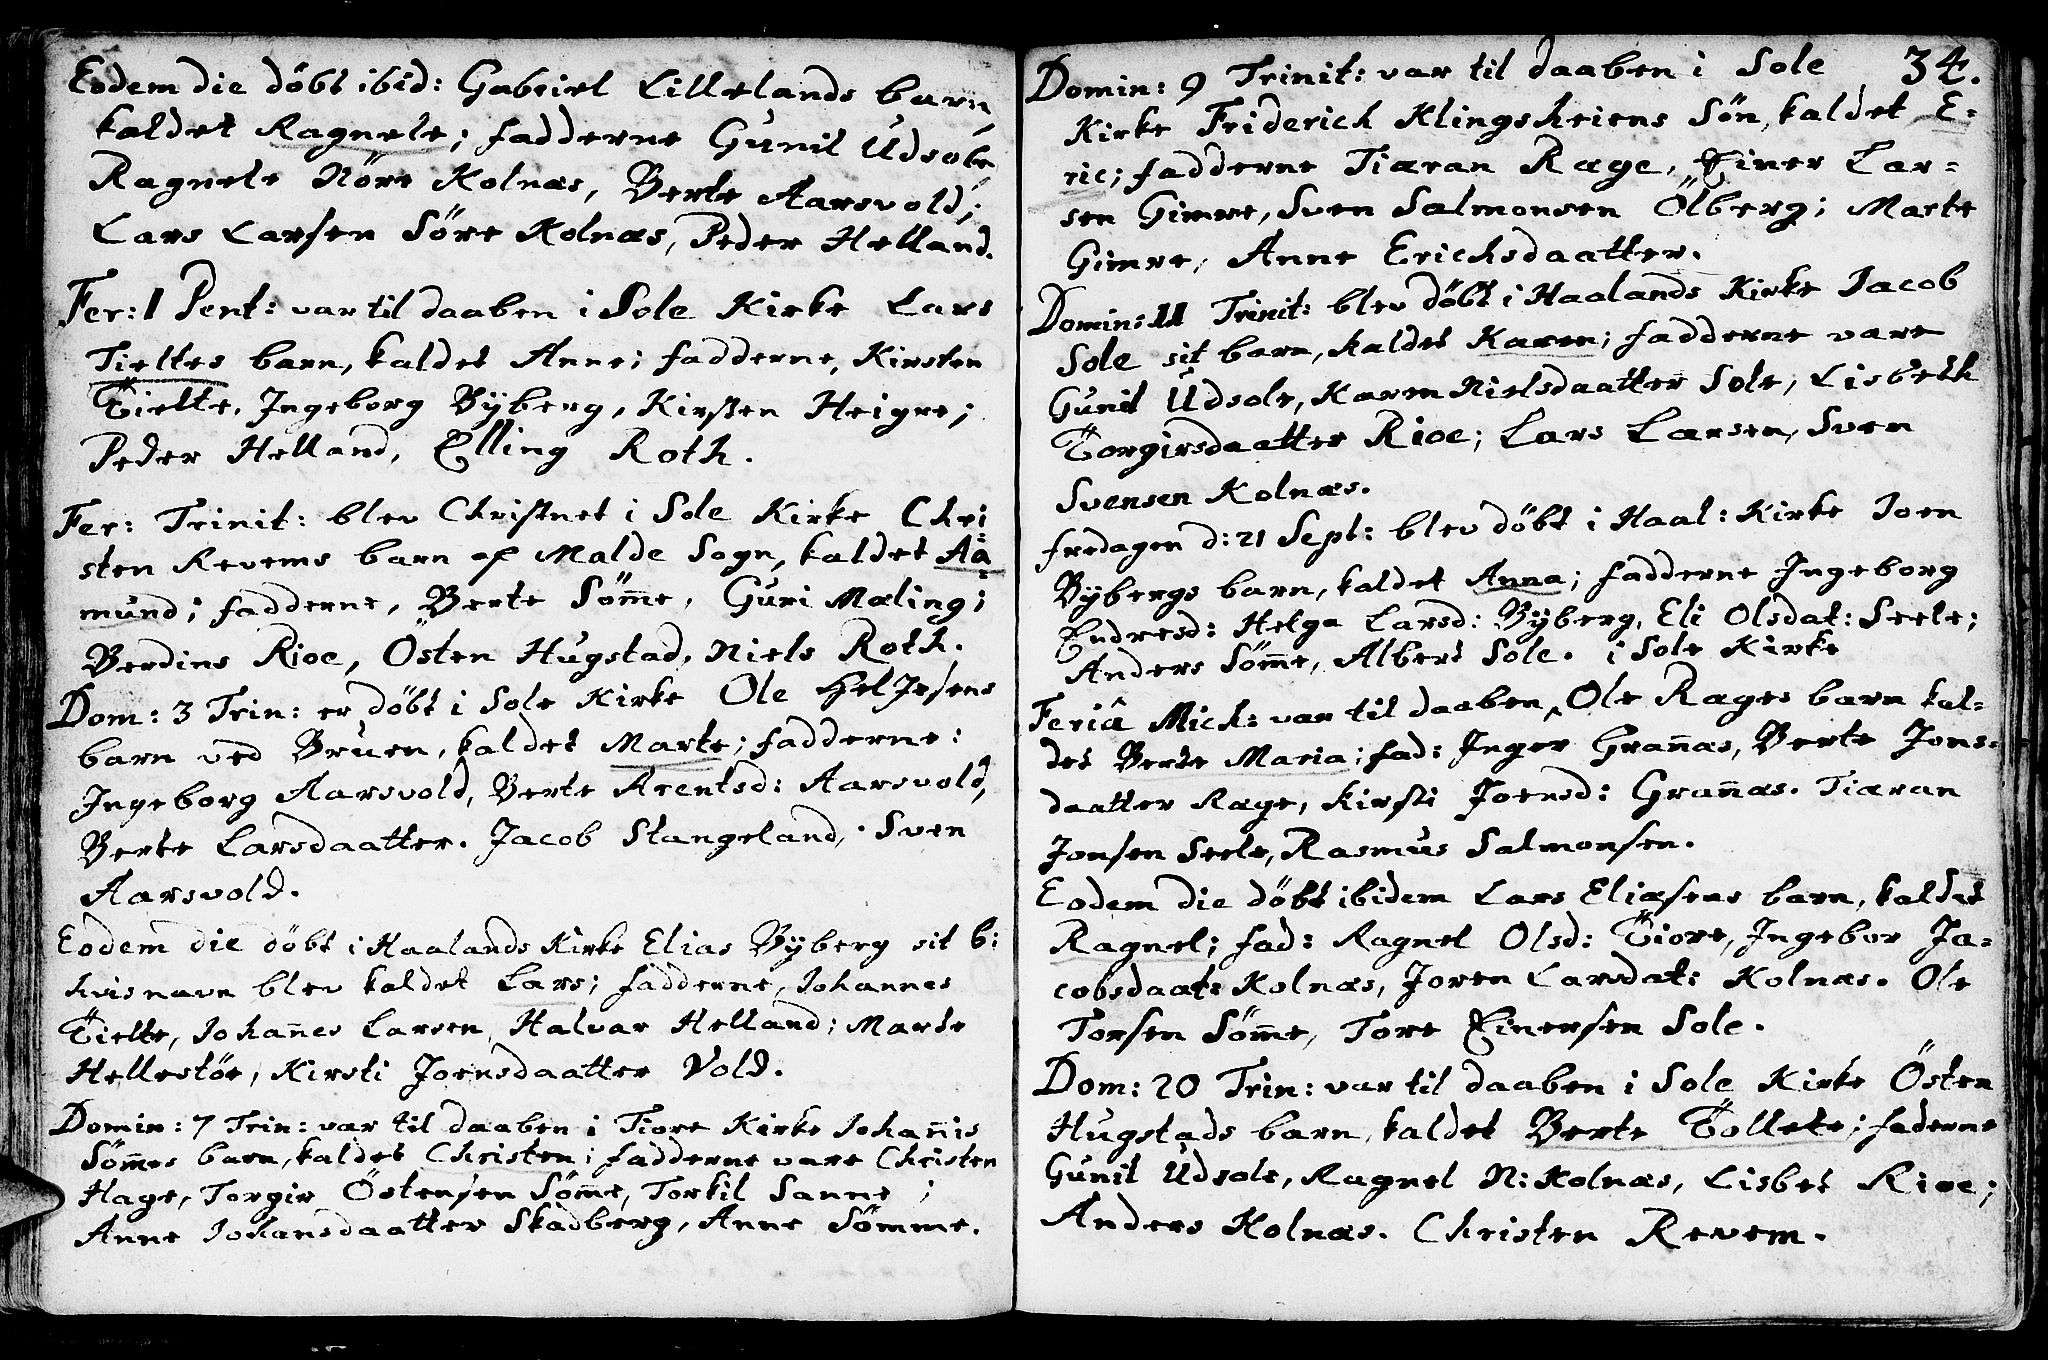 Eodem die döbt ibid: Gabriel Lillelands barn
kaldet Ragnele; fadderne Gunil Udsole
Ragnele Nöre Kolnæs, Berte Aarsvold;
Lars Larsen Söre Kolnæs, Peder Helland.
Fer: 1 Pent: var til daaben i Sole Kirke Lars
Tieltes barn, kaldet Anne; fadderne, Kirsten
Tielte, Ingeborg Byberg, Kirsten Heigre;
Peder Helland, Elling Roth.
Fer: Trinit: blev Christnet i Sole Kirke Chri:
sten Revems barn af Malde Sogn, kaldet Aa=
mund; fadderne, Berte Söm̄e, Guri Mæling;
Berdine Rioe, Östen Hugstad, Niels Roth.
Dom: 3 Trin: er döbt i Sole Kirke Ole Heljesens
barn ved Bruen, kaldet Marte; fadderne:
Ingeborg Aarsvold, Berte Arentsd: Aarsvold,
Berte Larsdaatter. Jacob Stangeland, Sven
Aarsvold.
Eodem die döbt i Haalands Kirke Elias Byberg sit b:
hvis navn blev kaldet Lars; fadderne, Johannes
Tielte, Johan̄es Larsen, Halvar Helland; Marte
Hellestöe, Kirsti Joensdaatter Vold.
Domin: 7 Trin: var til daaben i Tiore Kirke Johan̄is
Söm̄es barn, kaldet Christen; fadderne vare Christen
Hage, Torgir Östensen Söm̄e, Torkil Sanne;
Anne Johansdaatter Skadberg, Anne Sömme.
34.
Domin: 9 Trinit: var til daaben i Sole
Kirke Friderich Klingsheiens Sön, kaldet E=
ric; fadderne Tiæran Ræge, Einer Lar=
sen Gimre, Sven Salmonsen Ölberg; Marte
Gimre, Anne Erichsdaatter.
Domin: 11 Trinit: blev döbt i Haalands Kirke Jacob
Sole sit barn, kaldet Karen; fadderne vare
Gunil Udsole, Karen Nielsdaatter Sole, Lisbeth
Torgirsdaatter Rioe; Lars Larsen, Sven
Svensen Kolnæs.
fredagen d: 21 Sept: blev döbt i Haal: Kirke Joen
Bybergs barn, kaldet Anna; fadderne Ingeborg
Endresd: Helga Larsd: Byberg, Eli Olsdat: Seele;
Anders Söm̄e, Albert Sole. i Sole Kirke
Feriâ Mich: var til daaben ^ Ole Ræges barn kal=
det Berte Maria; fad: Inger Gran̄æs, Berte Jons=
daatter Ræge, Kirsti Joensd: Gran̄æs. Tiæran
Jonsen Seele, Rasmus Salmonsen.
Eodem die döbt ibidem Lars Eliasens barn, kaldet
Ragnel; fad: Ragnel Olsd: Tiore, Ingebor Ja=
cobsdaat: Kolnæs, Joren Larsdat: Kolnæs. Ole
Torsen Söm̄e, Tore Einersen Sole.
Dom: 20 Trin: var til daaben i Sole Kirke Östen
Hugstads barn, kaldet Berte Tollete; faderne
Gunil Udsole, Ragnel N: Kolnæs, Lisbet Rioe;
Anders Kolnæs. Christen Revem.